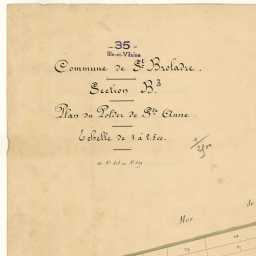 - 35 -
Ille-et-Vilaine
Commune de St Broladre.
Section B.3
Plan du Polder de Ste Anne.
Echelle de 1 à 2.500.
Mer
de